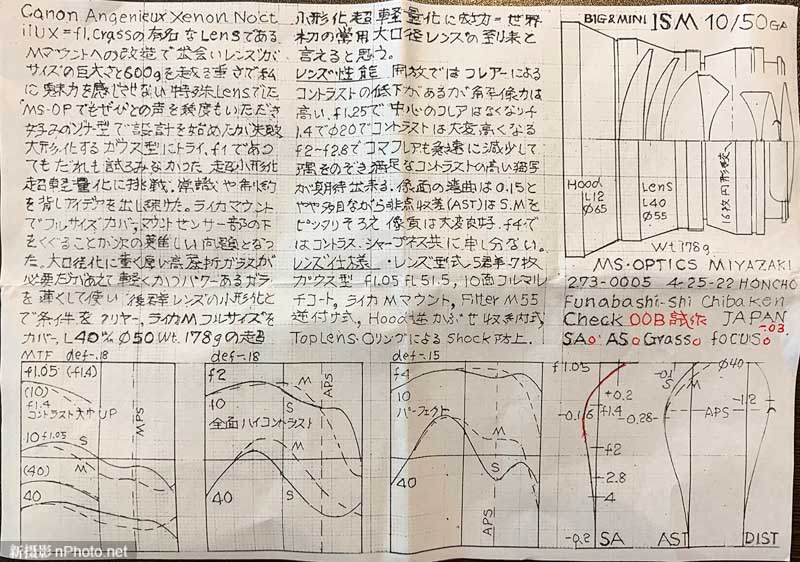 Canon Angenieux Xenon Noct
ilUX=f1.Crassの有名なLensである.
Mマウントへの改造で出会いレンズが
サイズの巨大さと600gを超える重さで私
に魅力を感じさせない特殊Lensでした.
MS-OPでもぜひとの声を幾度もいただき
好みのゾナー型で設計を始めたが失敗
大形化するガウス型にトライ. f1であっ
てもだれも試ろみなかった 超小形化
超軽量化に挑戦. 常識や制約
を背しアイデアを出し続けた. ライカマウント
でフルサイズカバー,マウントセンサー部の下
をくぐることが次の難しい向題となっ
た. 大口径化に重く厚い高屈折ガラスが
必要だがあえて軽くかつパワーあるガラ
を薄くして使い 後群レンズの小形化と
で条件をクリヤー, ライカMフルサイズを
カバー. L40% Φ50 Wt. 178gの超
小形化,超軽量化に成功=世界
初の常用大口径レンズの到来と
言えると思う.
レンズ性能 開放ではコレアーによる
コントラストの低下があるが解像力は
高い, f1.25で中心のコレアはなくなりf
1.4でΦ20でコントラストは大変高くなる
f2~f2.8でコマフレアも急速に減少して
隅をのぞき満足なコントラストの高い描写
が期待出来る. 像面の湾曲は0.15と
やや多目ながら非点収差(AST)はS.Mを
ピッタリそろえ 像質は大変良好. f4で
はコントラス.シャープネス共に申し分ない.
レンズ仕様 ・レンズ型式. 5群7枚
ガウス型 f1.05 fL51.5, 10面コルマル
チコート, ライカMマウント, Filter M55
逆付け式, Hood逆かぶせ収き内式
Top Lens.OリングによるShock防止.
BIG&MINI ISM 10/50 GA
Hood
L12
Φ65
Lens
L40
Φ55
16枚円形絞
Wt178g
MS・OPTICS MIYAZAKI
273-0005 4-25-22 HONCHO
Funabashi-shi Chibaken
Check 00B試作 JAPAN
SAo ASo Grasso focuso -.03.
MTF def-.18
f1.05 (-f1.4)
(10)
f1.4
コントラスト大巾UP
10 f1.05
S
M
(40)
40
MPS
def-.18
f2
10
M
S
APS
全面ハイコントラスト
M
40
S
def-.15
f4
10
パーフェクト
M
S
40
APS
f1.05
+0.2
-0.16
f1.4
f2
2.8
4
-0.2
SA
-0.1
S
M
-0.28
APS
AST
Φ40
-1.2
DIST
新摄影 nPhoto.net